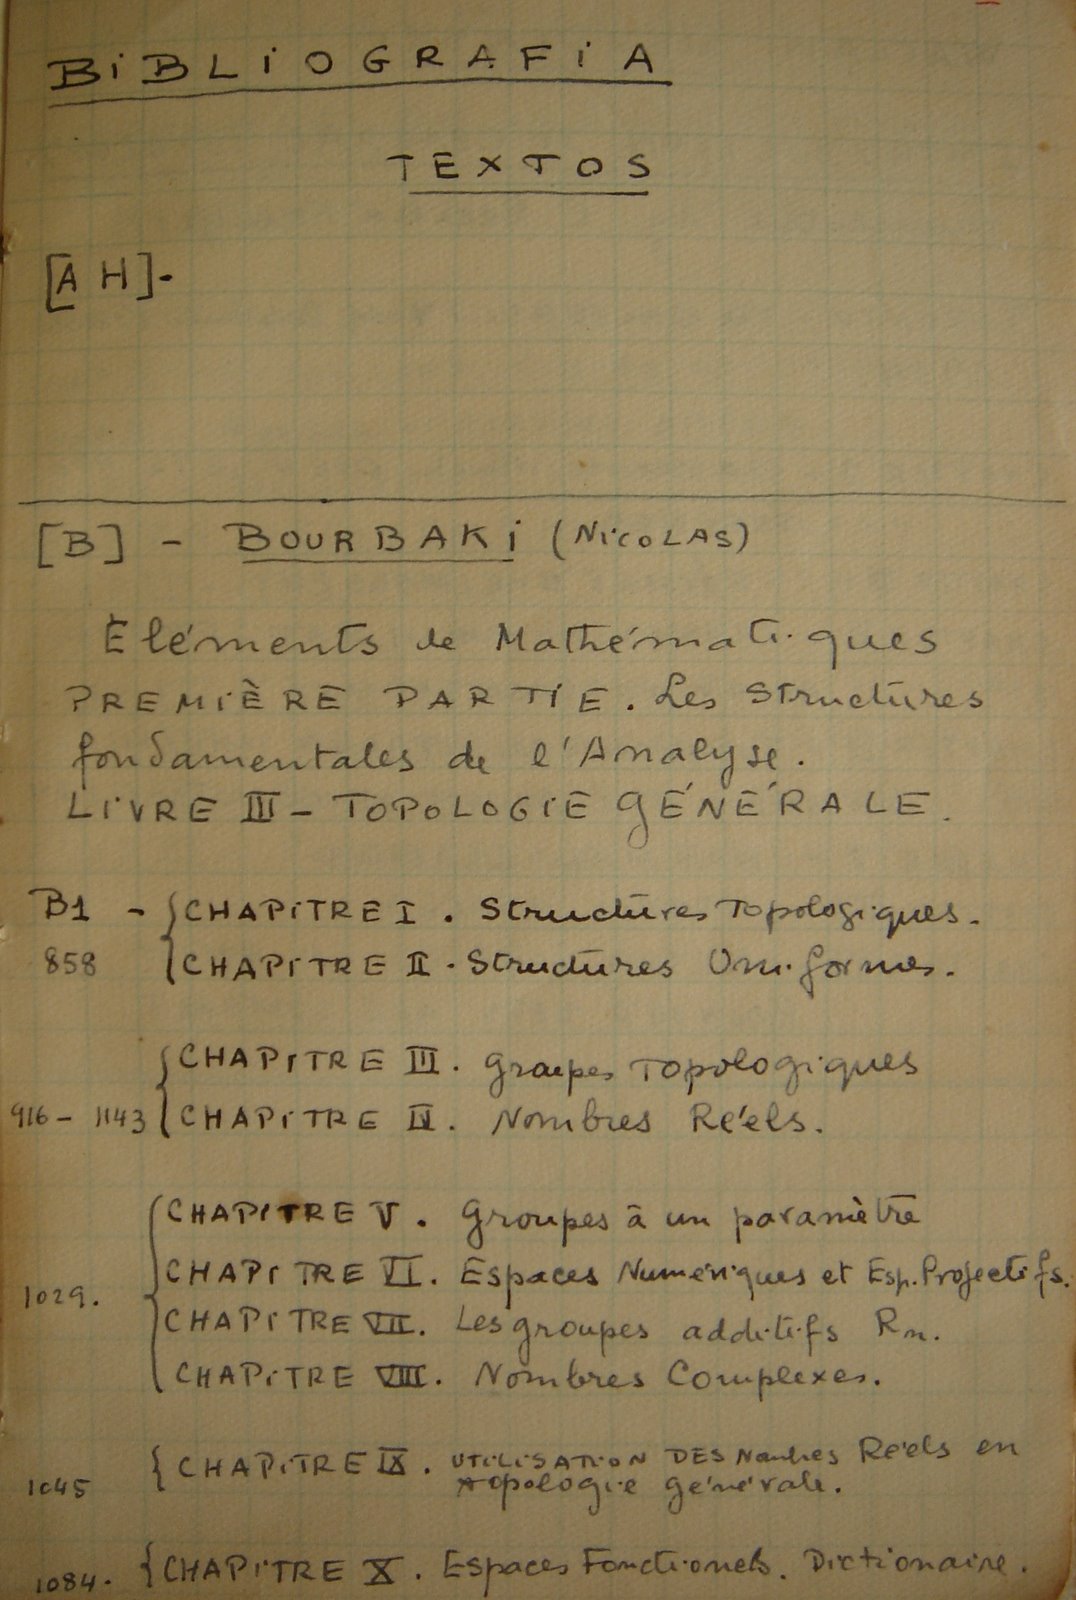 BiBLiOGRAFiA
TEXTOS
[AH]-
[B] - BOURBAKi (NicOLAS)
Eléments de Mathématiques
PREMIÈRE PARTIE. Les Structures
fondamentales de l'Analyse.
LIVRE III - TOPOLOGIE GÉNÉRALE.
B1 - { CHAPITRE I. Structures Topologiques.
858 CHAPITRE II. Structures Uniformes.
{ CHAPITRE III. Groupes Topologiques
916 - 1143 CHAPITRE IV. Nombres Réels.
{ CHAPITRE V. Groupes à un paramètre
CHAPITRE VI. Espaces Numériques et Esp. Projectifs.
1029. CHAPITRE VII. Les groupes additifs Rn.
CHAPITRE VIII. Nombres Complexes.
{ CHAPITRE IX. UTILISATION DES Nombres Réels en
1045 Topologie générale.
1084. { CHAPITRE X. Espaces Fonctionels. Dictionaire.